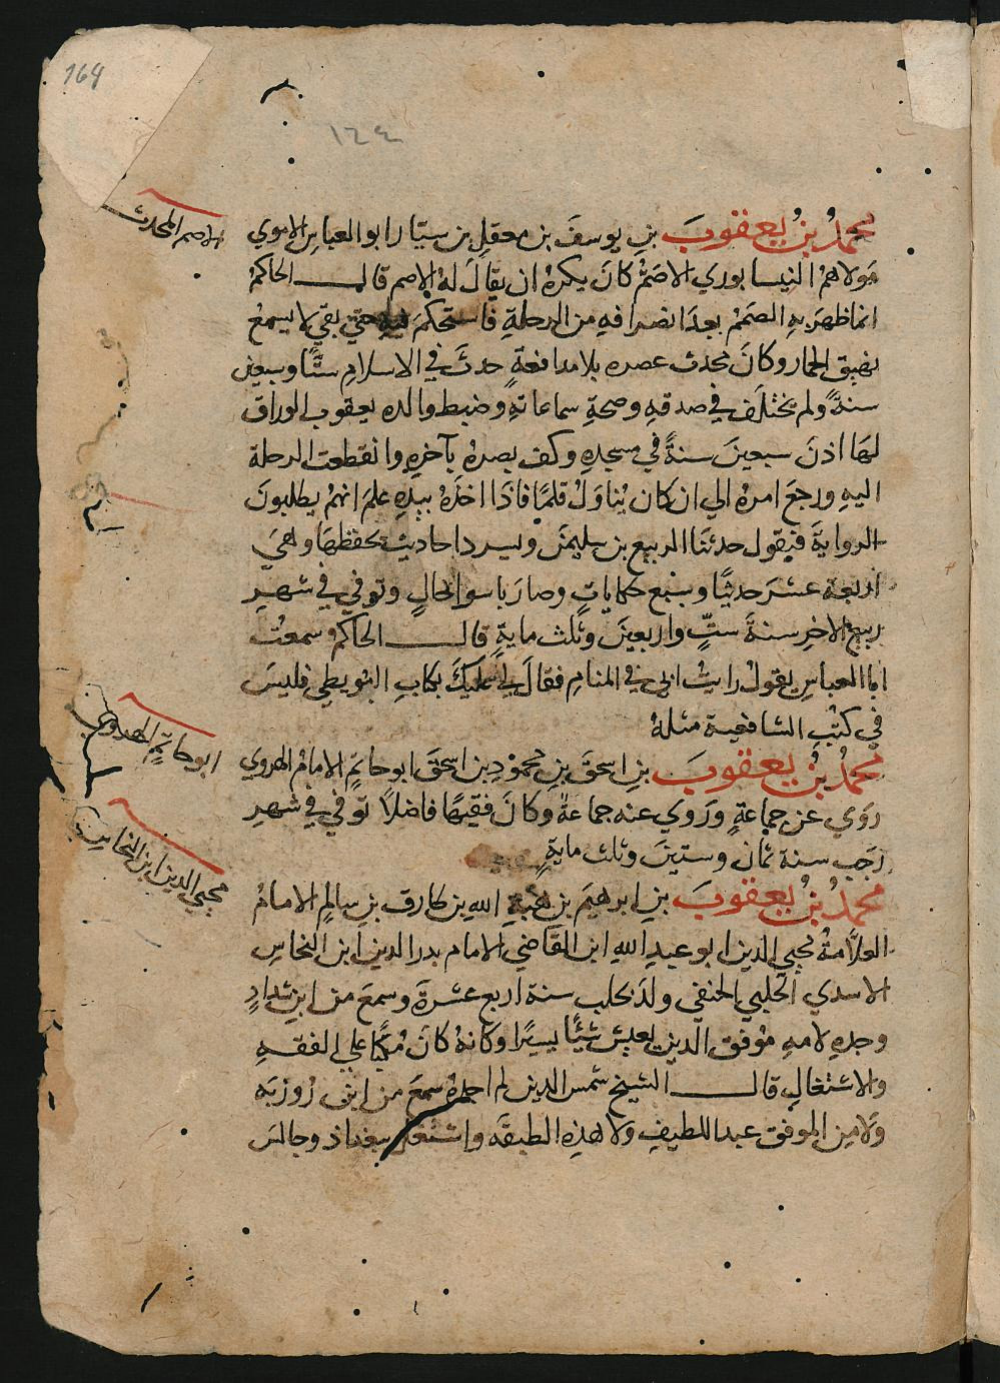 164
١٦٤
الاصم المحدث
محمدُ بنُ يعقوبَ بنِ يوسفَ بن معقلِ بن سيّار ابو العباسِ الاموي
مَولاهمُ النيسابوري الاصَمُّ كانَ يكرهُ ان يقالَ لهُ الاصم قال الحاكمُ
انما ظهرَ بهِ الصَّمَمُ بعدَ انصرافهِ من الرحلةِ فاستحكمَ فيهِ حتى بقي لا يسمعُ
نهيق الحمار وكانَ محدث عصره بلا مدافعةٍ حدثَ في الاسلامِ ستًّا وسبعين
سنةً ولم يختلَف في صدقهِ وصحةِ سماعاتهِ وضبط والده يعقوب الوراق
لها اذنَ سبعينَ سنةً في مسجدِهِ وكف بصرهُ بآخرِهِ وانقطعت الرحلة
اليهِ ورجعَ امرهُ الي ان كان يُناوَلُ قلمًا فاذَا اخذهُ بيدِهِ علمَ انهمُ يطلبونَ
الروايةَ فيقول حدثنَا الربيع بن سليمنَ ويسرد احاديث يحفظهَا وهيَ
اربعة عشرَ حديثًا وسبع حكاياتٍ وصارَ باسوا حالٍ وتوفي في شهرِ
ربيع الاخرِ سنةَ ستٍّ واربعينَ وثلث مايةٍ قال الحاكم وسمعتُ
ابا العباسِ يقولُ رايتُ ابي في المنامِ فقالَ لِي عليكَ بكتابِ البُويطي فليسَ
في كتُب الشافعية مثلهُ
ابو حاتمٍ الهروي
محمدُ بنُ يعقوبَ بنِ اسحقَ بنِ محمودِ بن اسحقَ ابو حاتمٍ الامامُ الهروي
روَي عن جماعةٍ ورَوي عنه جماعةٌ وكانَ فقيهًا فاضلًا توفي في شهرِ
رَجب سنة ثمان وستينَ وثلث مايةٍ
محيي الدين ابن النحاس
محمدُ بنُ يعقوبَ بنِ ابرهيمَ بن هبةِ اللهِ بن طارق بنِ سالمٍ الامامُ
العلّامةُ محيي الدين ابو عبدِ اللهِ ابن القاضي الامام بدر الدين ابن النحاسِ
الاسدي الحلبي الحنفي ولدَ بحلب سنة اربع عشرةَ وسمعَ من ابنِ شدادٍ
وجدِهِ لامهِ موُفق الدين يعيش شيئًا يسيرًا وكانهُ كانَ مُكبًّا علي الفقهِ
والاشتغالِ قال الشيخ شمس الدين لم اجدهُ سمعَ من ابن رُوزبَه
ولا من الموفق عبد اللطيفِ ولا هذهِ الطبقه واشتغلَ ببغداذ وجالسَ